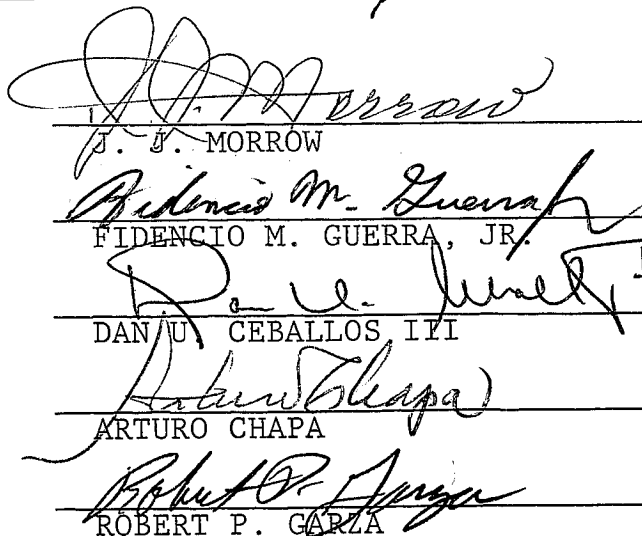 J. J. Morrow
J. J. MORROW
Fidencio M. Guerra Jr
FIDENCIO M. GUERRA, JR.
Dan U.
DAN U. CEBALLOS III
Arturo Chapa
ARTURO CHAPA
Robert P. Garza
ROBERT P. GARZA